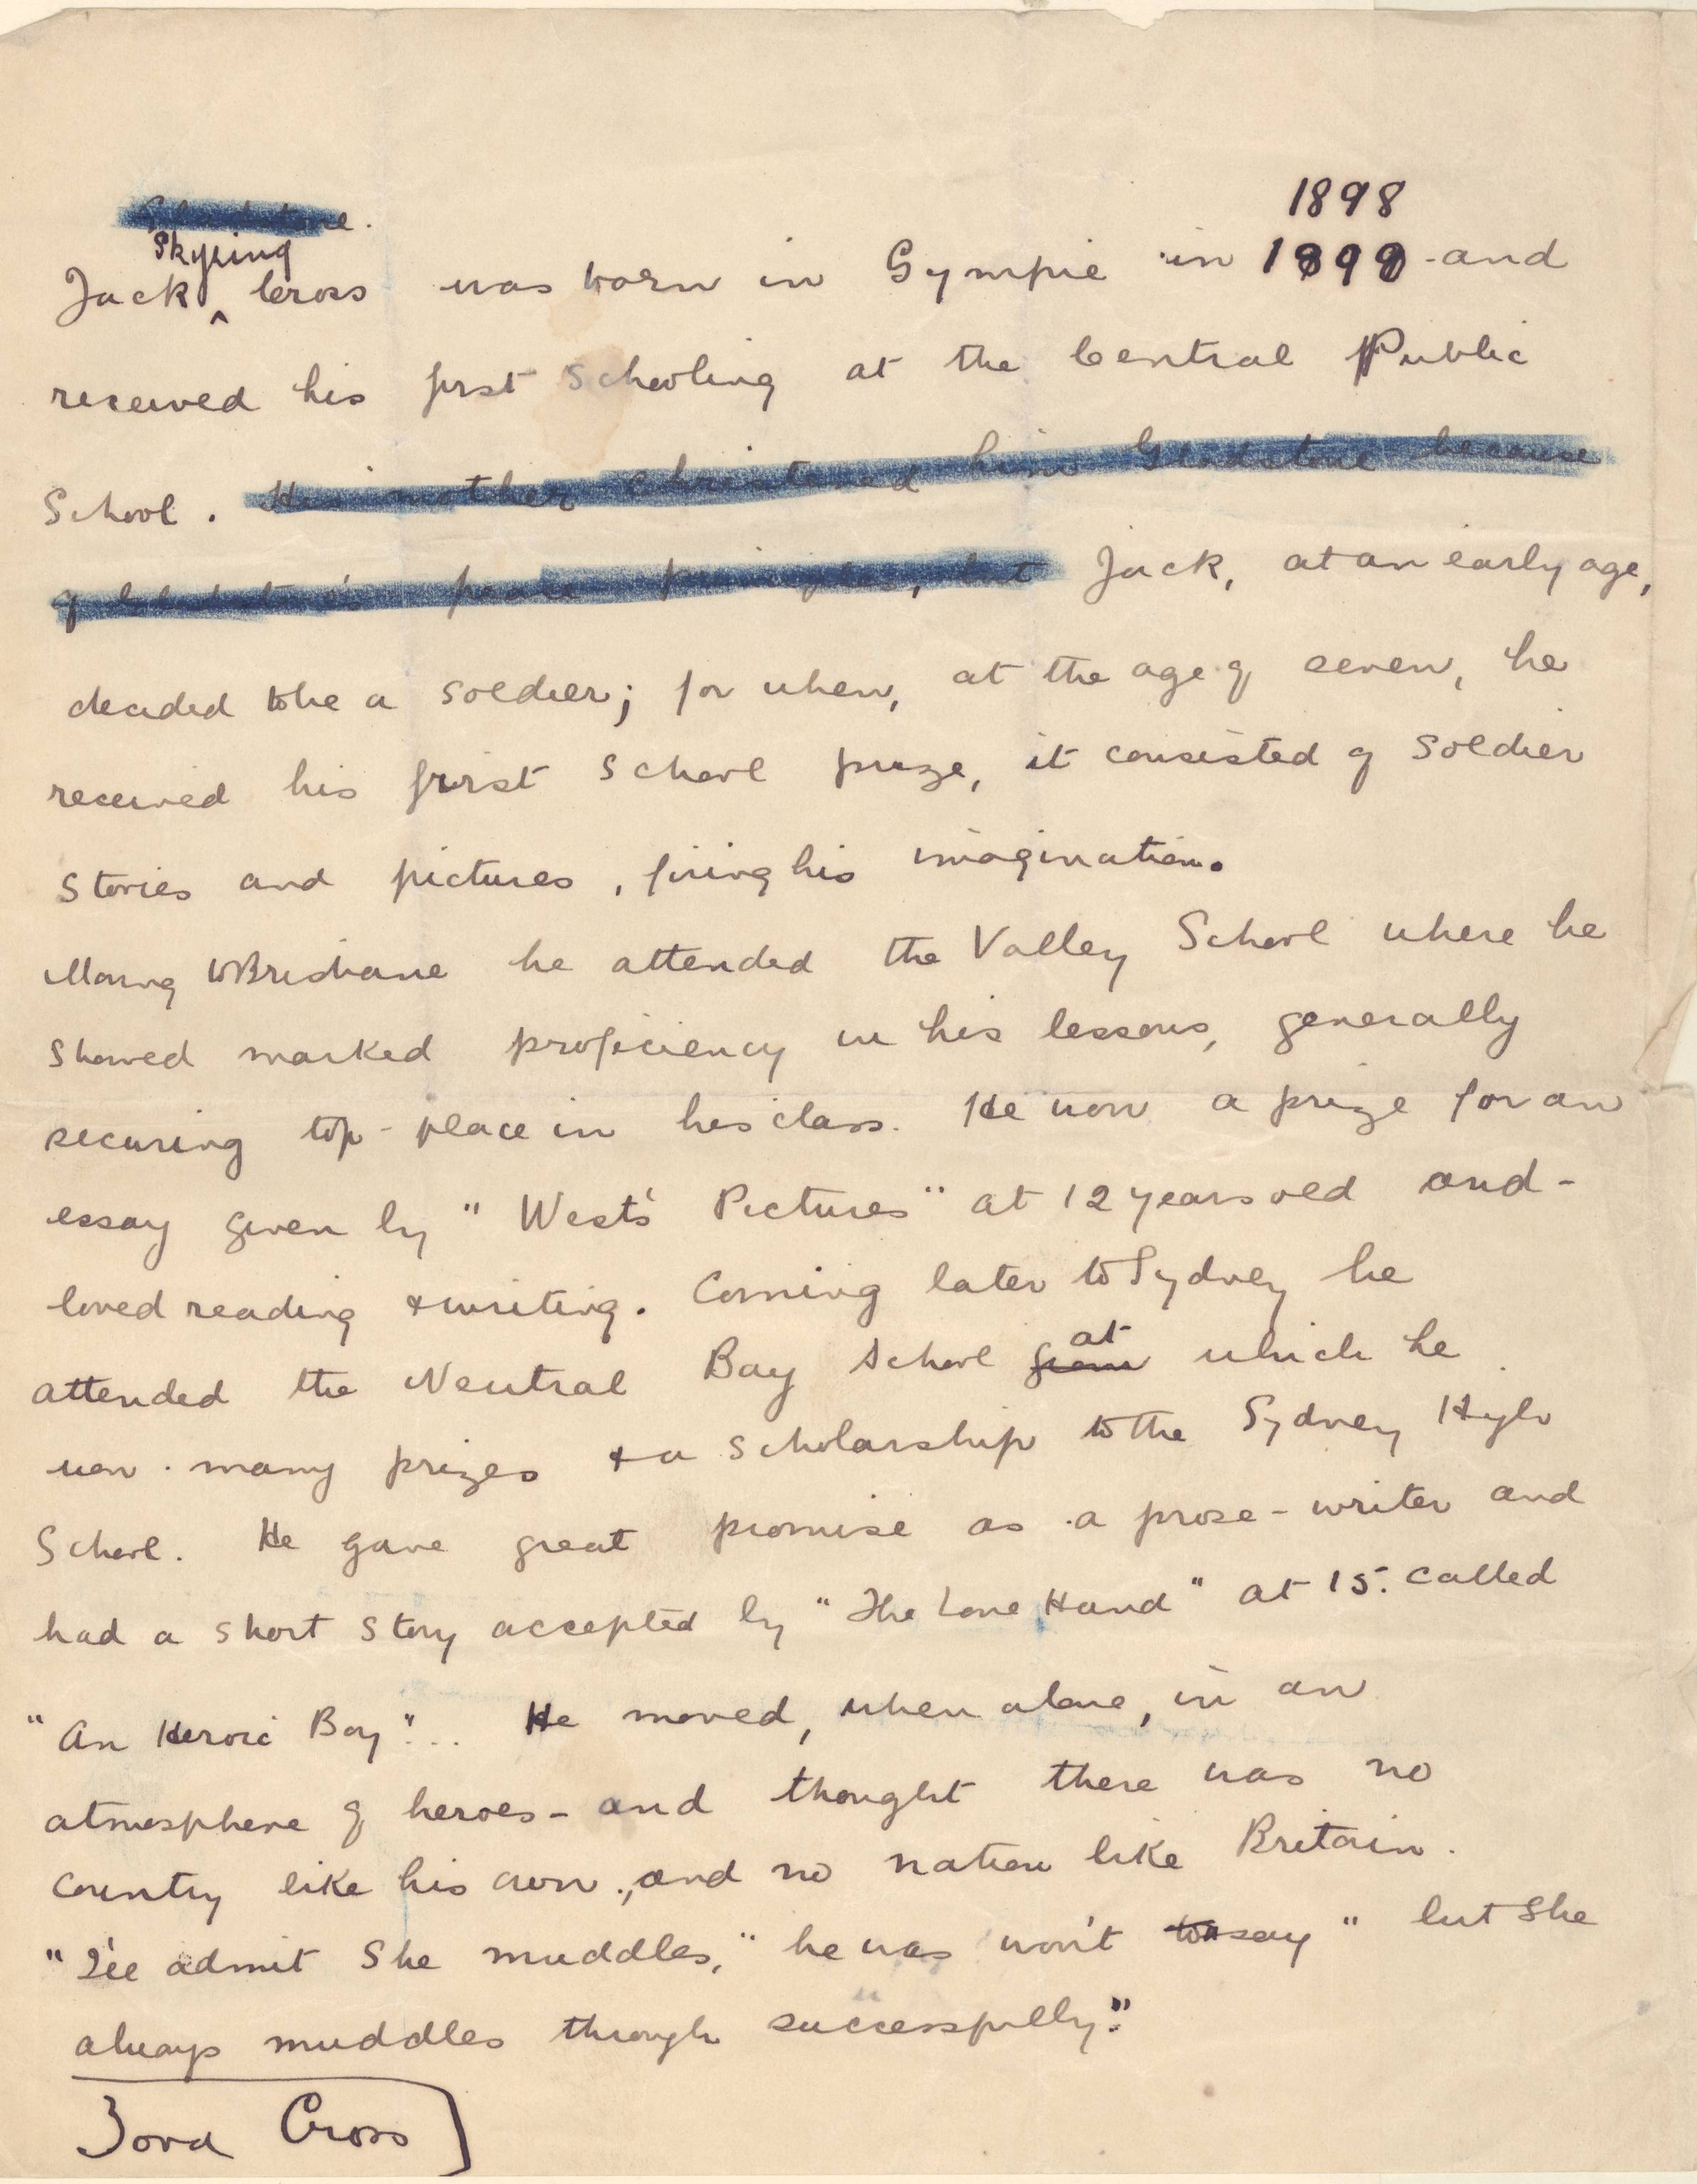 Gladstone.
1898
Skyring
Jack ^ Cross was born in Gympie in 1898 - and
received his first schooling at the Central Public
School. His mother christened him Gladstone because
of Gladstone's peace principles, but Jack, at an early age,
decided to be a soldier; for when, at the age of seven, he
received his first school prize, it consisted of soldier
stories and pictures, firing his imagination.
Moving to Brisbane he attended the Valley School where he
showed marked proficiency in his lessons, generally
securing top-place in his class. He won a prize for an
essay given by "West's Pictures" at 12 years old and -
loved reading & writing. Coming later to Sydney he
at
attended the Neutral Bay School from which he
won many prizes & a scholarship to the Sydney High
School. He gave great promise as a prose-writer and
had a short story accepted by "The Lone Hand" at 15. called
"An Heroic Boy"... He moved, when alone, in an
atmosphere of heroes - and thought there was no
country like his own, and no nation like Britain.
"I'll admit she muddles," he was won't to say "but she
always muddles through successfully."
Zora Cross